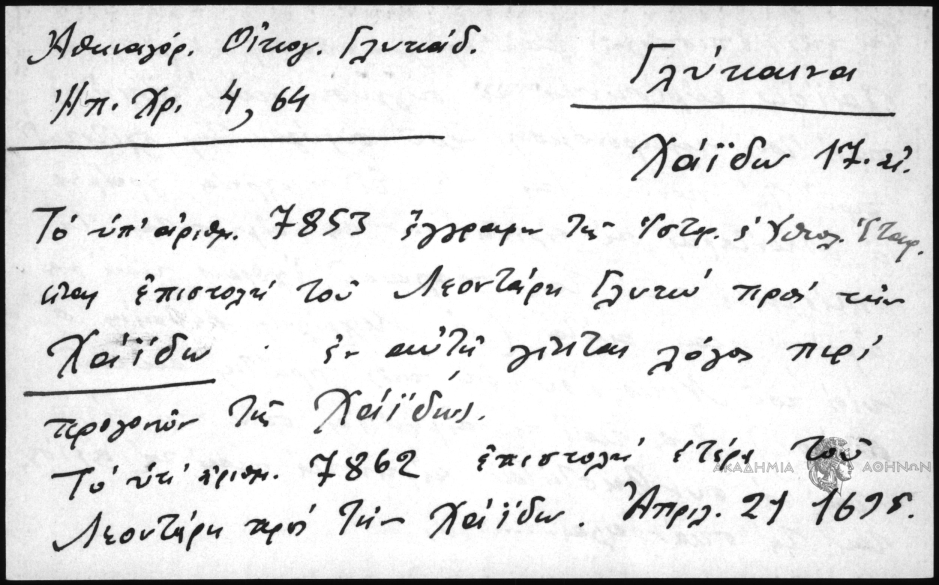 Ἀθηναγόρ. Οἰκογ. Γλυκάδ.
Ἠπ. Χρ. 4, 64
Γλύκαινα
Χάϊδω 17. αἰ.
Τό ὑπ' ἀριθμ. 7853 ἔγγραφον τῆς Ἱστρ. ἐ Ἐθνολ. Ἑταιρ.
εἶναι ἐπιστολή τοῦ Λεοντάρη Γλυκύ πρός τήν
Χάϊδω . ἐν αὐτῇ γίνεται λόγος περί
προγονῶν τῆς Χάϊδως.
Τό ὑπ' ἀριθμ. 7862 ἐπιστολή ἑτέρα τοῦ
Λεοντάρη πρός τήν Χάϊδω. Ἀπριλ. 21 1695.
ΑΚΑΔΗΜΙΑ ΑΘΗΝΩΝ